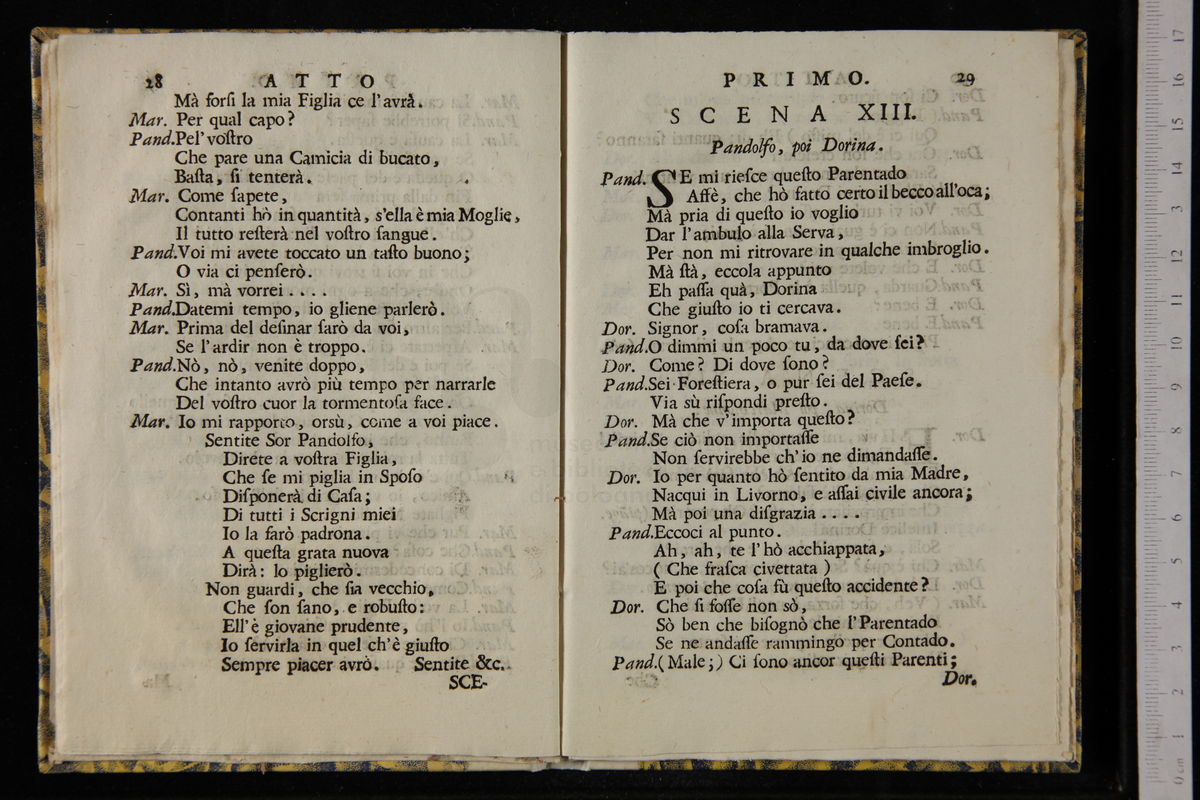 28 ATTO
Mà forſi la mia Figlia ce l'avrà.
Mar. Per qual capo?
Pand. Pel' voſtro
Che pare una Camicia di bucato,
Baſta, ſi tenterà.
Mar. Come ſapete,
Contanti hò in quantità, s'ella è mia Moglie,
Il tutto reſterà nel voſtro ſangue.
Pand. Voi mi avete toccato un taſto buono;
O via ci penſerò.
Mar. Sì, mà vorrei . . . .
Pand. Datemi tempo, io gliene parlerò.
Mar. Prima del deſinar ſarò da voi,
Se l'ardir non è troppo.
Pand. Nò, nò, venite doppo,
Che intanto avrò più tempo per narrarle
Del voſtro cuor la tormentoſa face.
Mar. Io mi rapporto, orsù, come a voi piace.
Sentite Sor Pandolfo,
Direte a voſtra Figlia,
Che ſe mi piglia in Spoſo
Diſponerà di Caſa;
Di tutti i Scrigni miei
Io la farò padrona.
A queſta grata nuova
Dirà: lo piglierò.
Non guardi, che ſia vecchio,
Che ſon ſano, e robuſto:
Ell'è giovane prudente,
Io ſervirla in quel ch'è giuſto
Sempre piacer avrò. Sentite &c.
SCE-
PRIMO. 29
SCENA XIII.
Pandolfo, poi Dorina.
Pand. SE mi rieſce queſto Parentado
Affè, che hò fatto certo il becco all'oca;
Mà pria di queſto io voglio
Dar l'ambulo alla Serva,
Per non mi ritrovare in qualche imbroglio.
Mà ſtà, eccola appunto
Eh paſſa quà, Dorina
Che giuſto io ti cercava.
Dor. Signor, coſa bramava.
Pand. O dimmi un poco tu, da dove ſei?
Dor. Come? Di dove ſono?
Pand. Sei Foreſtiera, o pur ſei del Paeſe.
Via sù riſpondi preſto.
Dor. Mà che v'importa queſto?
Pand. Se ciò non importaſſe
Non ſervirebbe ch'io ne dimandaſſe.
Dor. Io per quanto hò ſentito da mia Madre,
Nacqui in Livorno, e aſſai civile ancora;
Mà poi una diſgrazia . . . .
Pand. Eccoci al punto.
Ah, ah, te l'hò acchiappata,
( Che fraſca civettata )
E poi che coſa fù queſto accidente?
Dor. Che ſi foſſe non sò,
Sò ben che biſognò che l'Parentado
Se ne andaſſe rammingo per Contado.
Pand. ( Male; ) Ci ſono ancor queſti Parenti;
Dor.